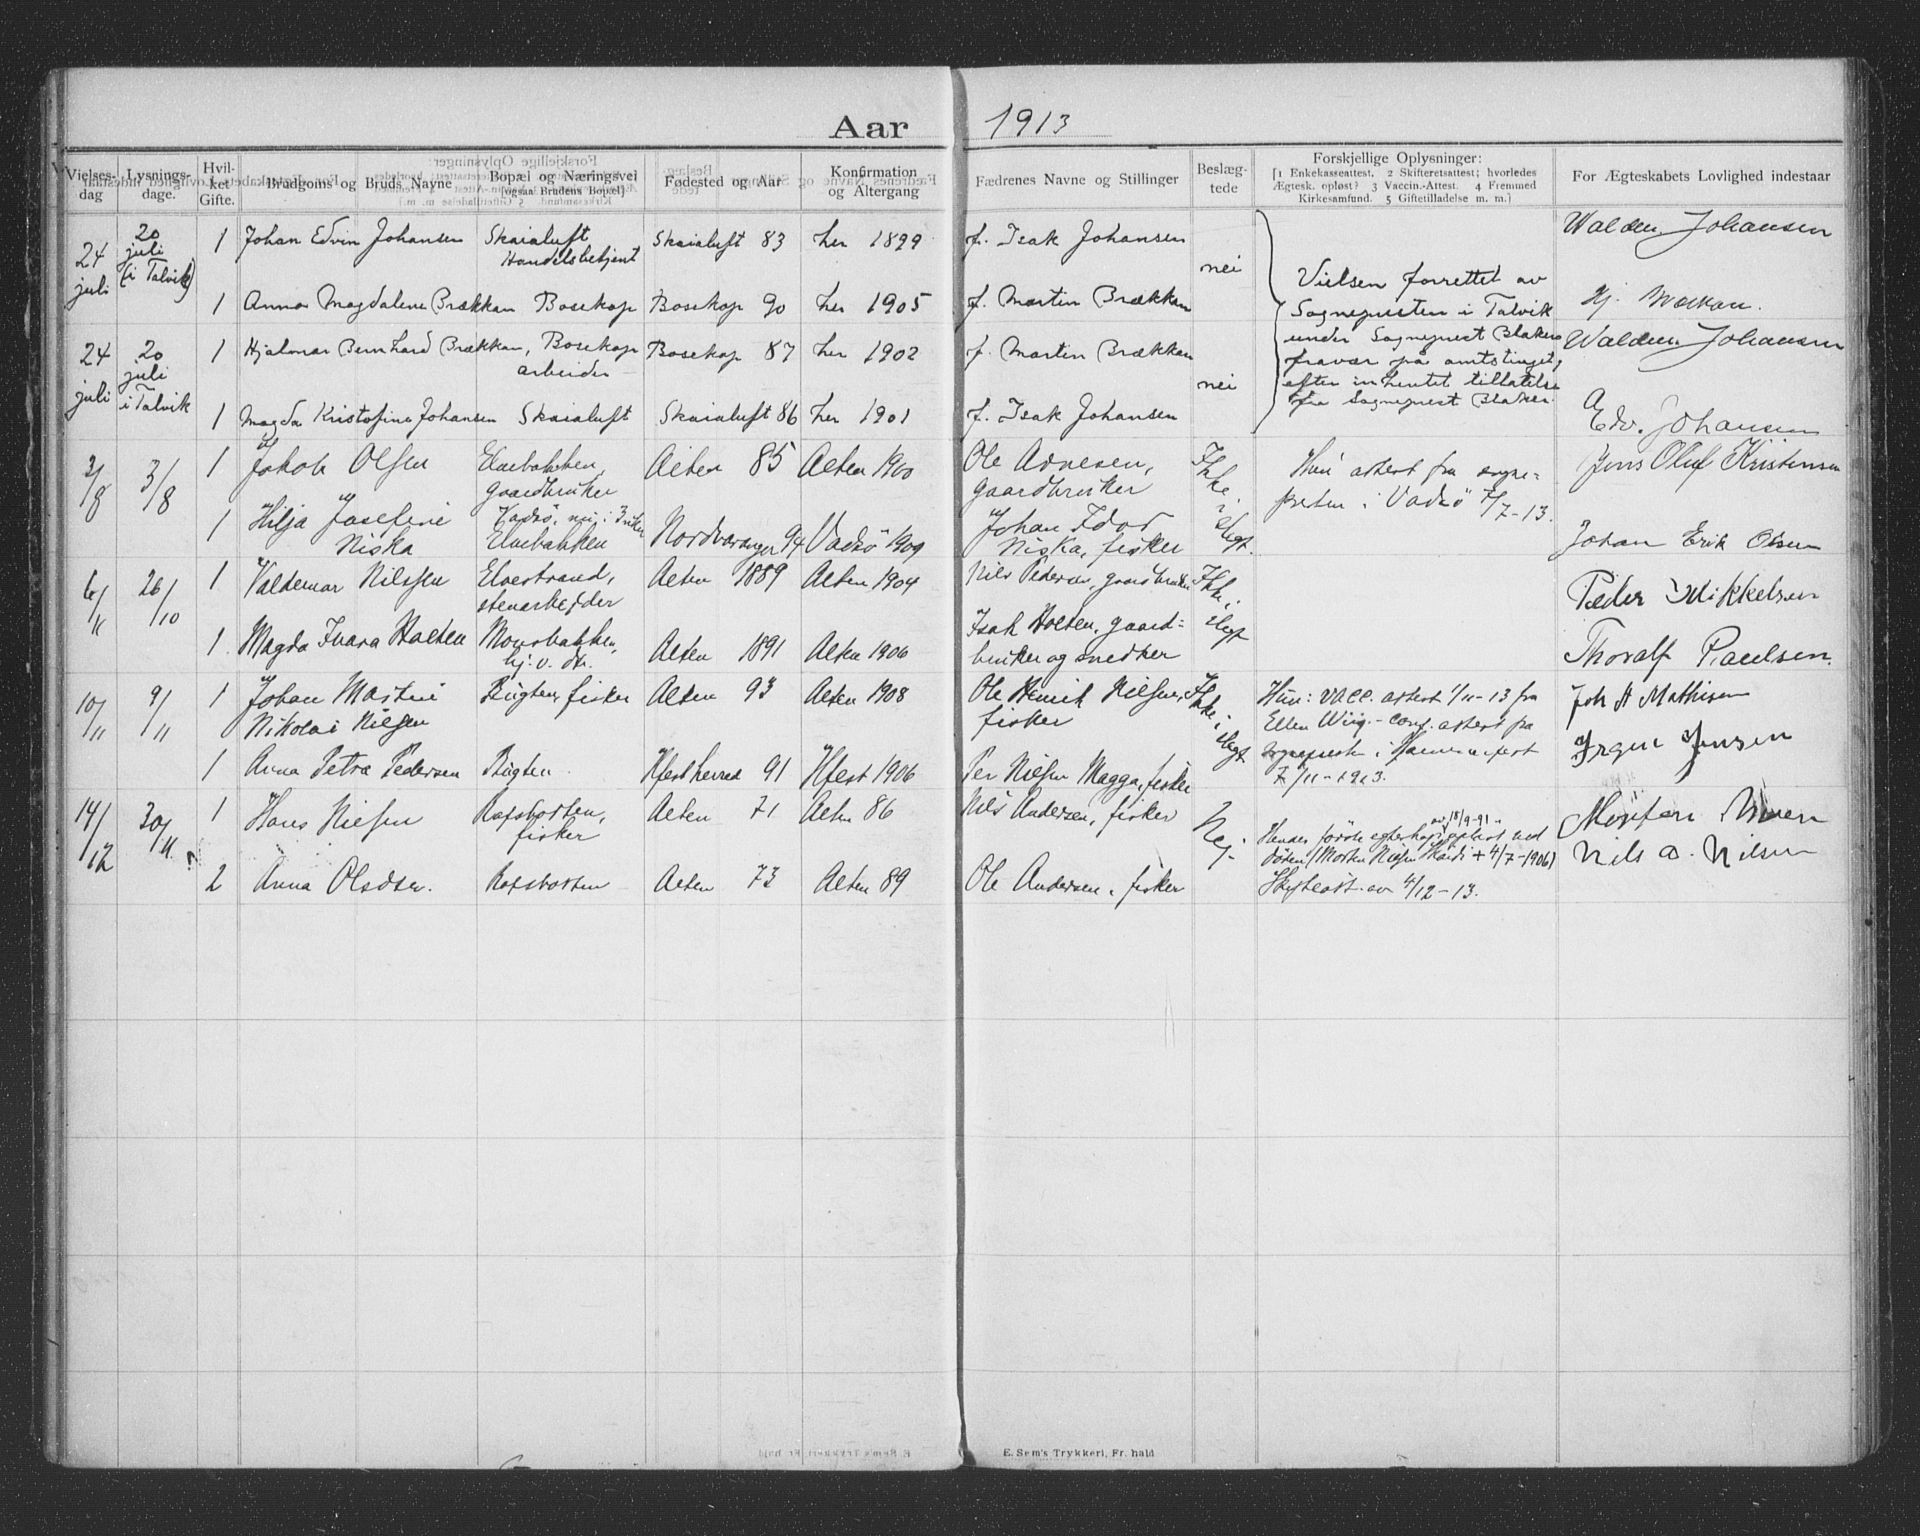 Aar 1913
Vielses-dag
Lysnings-dage.
Hvil-ket Gifte.
Brudgoms og Bruds Navne
Bopæl og Næringsvei [ogsaa Brudens Bopæl]
Fødested og Aar
Konfirmation og Altergang
Fædrenes Navne og Stillinger
Beslæg-tede
Forskjellige Oplysninger:
[1 Enkekasseattest. 2 Skifteretsattest; hvorledes
Ægtesk. opløst? 3 Vaccin.-Attest. 4 Fremmed
Kirkesamfund. 5 Giftetilladelse m. m.]
For Ægteskabets Lovlighed indestaar
24 juli
20 juli (i Talvik)
1 Johan Edvin Johansen
Skaialuft Handelsbetjent
Skaialuft 83
her 1899
f. Isak Johansen
nei
Walden Johansen
1 Anna Magdalene Brækkan
Bosekop
Bosekop 90
her 1905
f. Martin Brækkan
Vielsen forrettet av
Sognepresten i Talvik
under Sogneprest Blakers
fravær på amtstinget,
efter inhentet tillatelse
fra Sogneprest Blaker.
24 juli
20 juli i Talvik
1 Hjalmar Bernhard Brækkan,
Bosekop arbeider
Bosekop 87
her 1902
f. Martin Brækkan
nei
Walden Johansen
1 Magda Kristofine Johansen
Skaialuft
Skaialuft 86
her 1901
f. Isak Johansen
A Edv. Johansen
3/8
3/8
1 Jakob Olsen
Elvebakken, gaardbruker
Alten 85
Alten 1900
Ole Arnesen,
gaardbruker
Ikke i slegt.
Hun attest fra sogne-
presten i Vadsö 7/7-13.
Jens Oluf Kristensen
1 Hilja Josefine
Niska
Vadsö, nu i
Elvebakken
Nordvaranger 94
Vadsö 1909
Johan
Niska, fisker
Johan Erik Olsen
6/11
26/10
1 Valdemar Nilssen
Elvestrand,
stenarbejder
Alten 1889
Alten 1904
Nils Pedersen, gaardbruker
Ikke i slegt
Peder Mikkelsen
1 Magda Ivara Holten
hj. v. dr.
Alten 1891
Alten 1906
Isak Holten, gaard-
bruker og snedker
Thoralf Paulsen.
10/11
9/11
1 Johan Martin
Nikolai Nilsen
Bugten, fisker
Alten 93
Alten 1908
Ole Henrik Nilsen,
fisker
Ikke i slegt
Hun: vacc. attest 1/11-13 fra
Ellen Wiig. - conf. attest fra
sogneprest i Hammerfest
7/11-1913.
Joh A Mathisen
1 Anna Petra Pedersen
Bugten.
Hfest herred 91
Hfest 1906
Per Nilsen Magga, fisker
Jensen
14/12
30/11.
1 Hans Nilsen
Rafsbotten,
fisker
Alten 71
Alten 86
Nils Andersen, fisker
Nej.
av 18/9-91
Hendes förste egteskap oplöst ved
döden (Morten Nilsen + 4/7-1906)
Skifteatt. av 4/12-13.
2 Anna Olsdtr.
Rafsbotten
Alten 73
Alten 89
Ole Andersen, fisker
Nils a. Nilsen
E. Sem's Trykkeri, Fr. hald